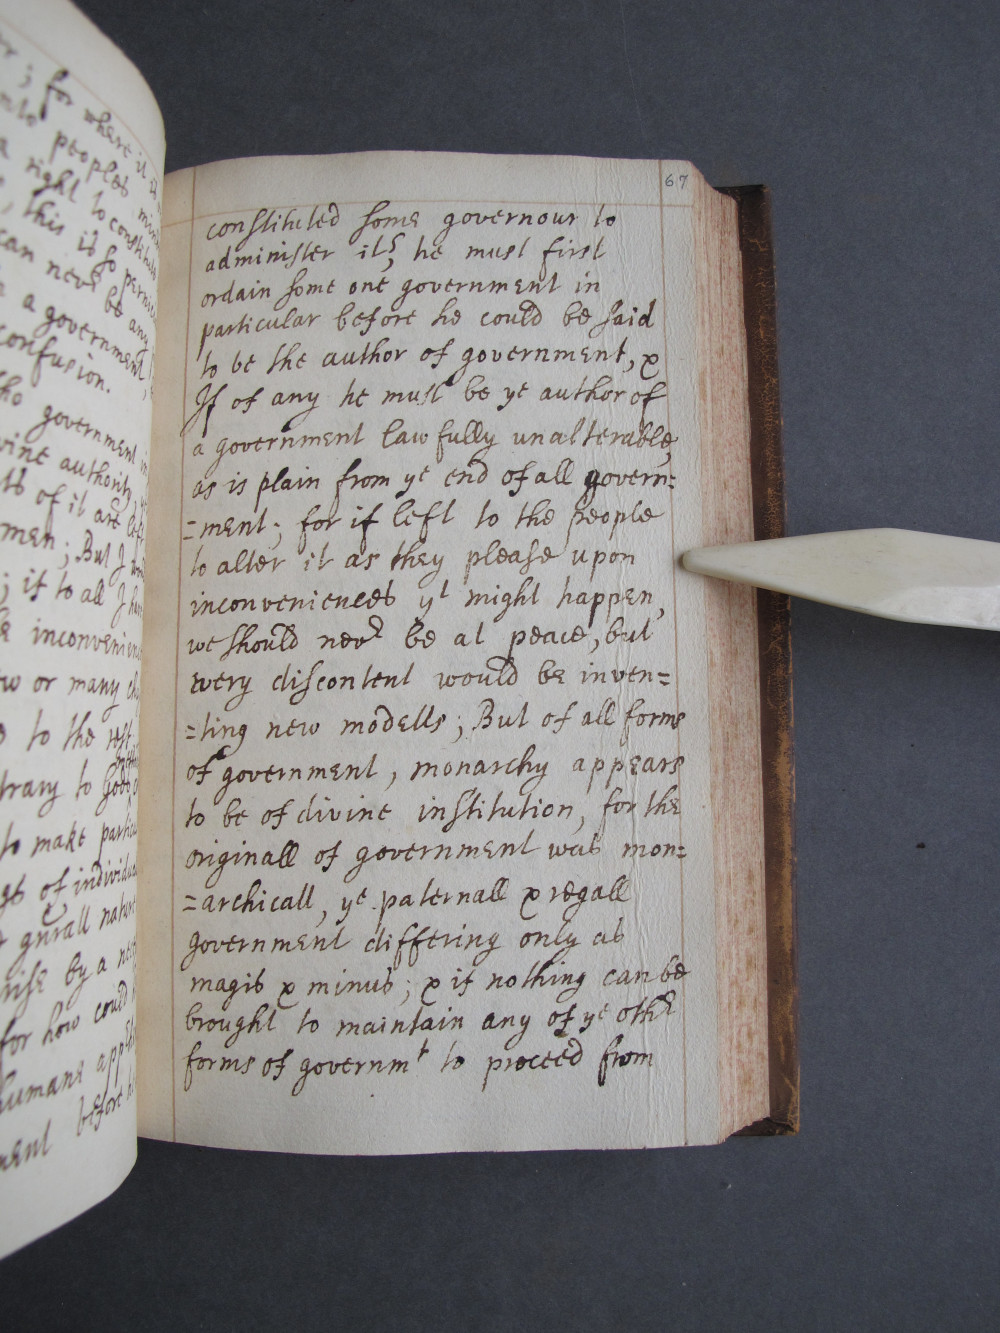 r; for where it is
into peoples minds
a right to constitute
, this is so pernici
can never be any
a government,
confusion.
the government in
vine authority, ye
ts of it are left
men; But I
; it to all I have
inconvenien
w or many
to the rest
trary to Gods
to make particu
gs of, individua
gnrall nature
rise by a
for how could
humane
ment before h
67
constituted some governour to
administer it, he must first
ordain some one government in
particular before he could be said
to be the author of government, &
If of any he must be ye author of
a government lawfully unalterable,
as is plain from ye end of all govern=
=ment; for if left to the people
to alter it as they please upon
inconveniences yt might happen,
we should never be at peace, but
every discontent would be inven=
=ting new modells; But of all forms
of government, monarchy appears
to be of divine institution, for the
originall of government was mon=
=archicall, ye paternall & regall
government differing only as
magis & minus; & if nothing can be
brought to maintain any of ye other
forms of governmt to proceed from